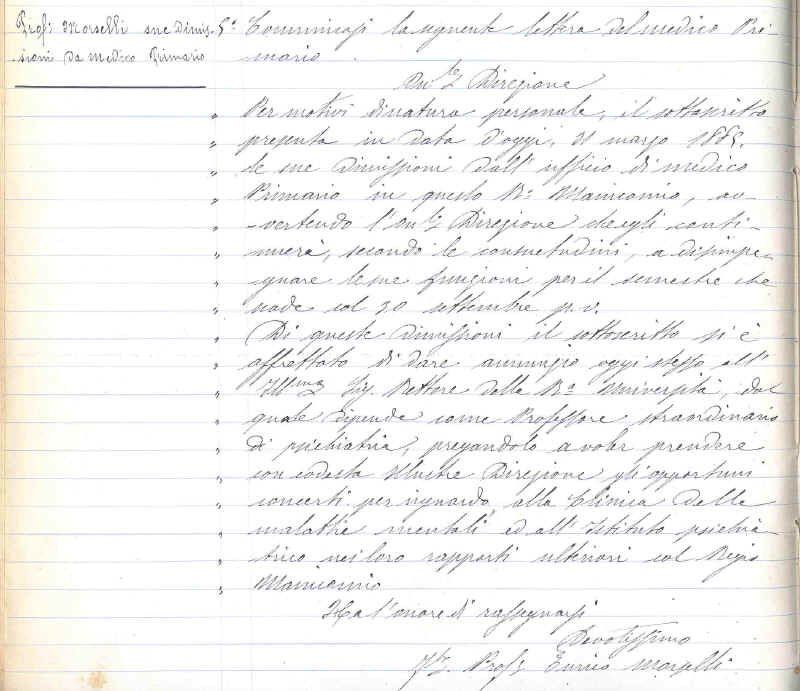 Prof: Morselli sue dimis-
sioni da medico Primario
5° Comunicasi la seguente lettera del medico Pri-
mario
On.le Direzione
" Per motivi di natura personale, il sottoscritto
" presenta in data d'oggi, 31 marzo 1885.
" le sue dimissioni dall'ufficio di medico
" Primario in questo R° Manicomio, av-
" -vertendo l'On.le Direzione che egli conti-
" nuerà, secondo le consuetudini, a disimpe-
" gnare le sue funzioni per il semestre che
" scade col 30 settembre p. v.
" Di queste dimissioni il sottoscritto si è
" affrettato di dare annunzio oggi stesso all'
" Ill.mo Sig. Rettore della R.a Università, dal
" quale dipende come Professore straordinario
" di psichiatria, pregandolo a voler prendere
" con codesta Illustre Direzione gli opportuni
" concerti per riguardo alla Clinica delle
" malattie mentali ed all'Istituto psichia-
" trico nei loro rapporti ulteriori col Regio
" Manicomio
Ha l'onore di rassegnarsi
Devotissimo
Prof: Enrico Morselli